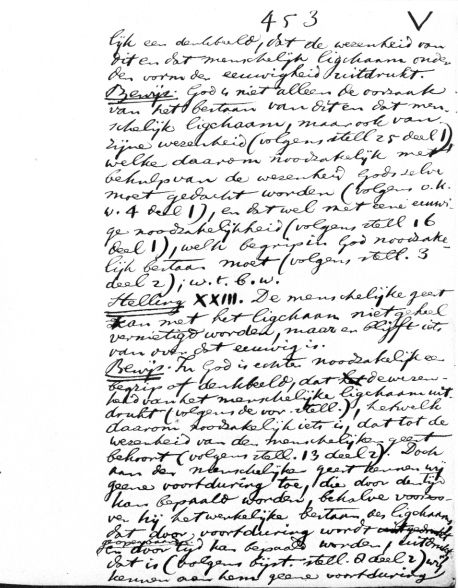 453
V
lijk een denkbeeld, dat de wezenheid van
dit en dat menschelijk ligchaam onder
den vorm der eeuwigheid uitdrukt.
Bewijs. God is niet alleen de oorzaak
van het bestaan van dit en dat men-
schelijk ligchaam, maar ook van
zijne wezenheid (volgens stell 25 deel 1)
welke daarom noodzakelijk met
behulp van de wezenheid Gods zelve
moet gedacht worden (volgens o.k.
w. 4 deel 1), en dat wel met eene eeuwi-
ge noodzakelijkheid (volgens stell 16
deel 1), welk begrip in God noodzake-
lijk bestaan moet (volgens stell. 3
deel 2); w.t.b.w.
Stelling XXIII. De menschelijke geest
kan met het ligchaam niet geheel
vernietigd worden, maar er blijft iets
van over dat eeuwig is.
Bewijs. In God is echter noodzakelijk een
begrip of denkbeeld, dat de wezen-
heid van het menschelijke ligchaam uit-
drukt (volgens de vor. stell.), hetwelk
daarom noodzakelijk iets is, dat tot de
wezenheid van de menschelijke geest
behoort (volgens stell. 13 deel 2). Doch
aan den menschelijke geest kennen wij
geene voortduring toe, die door de tijd
kan bepaald worden, behalve voorzoo-
ver hij het werkelijke bestaan des ligchaams,
dat door voortduring wordt
en door tijd kan bepaald worden, uitdrukt,
dat is (volgens bijst. stell. 8 deel 2) wij
kennen aan hem geene voortduring